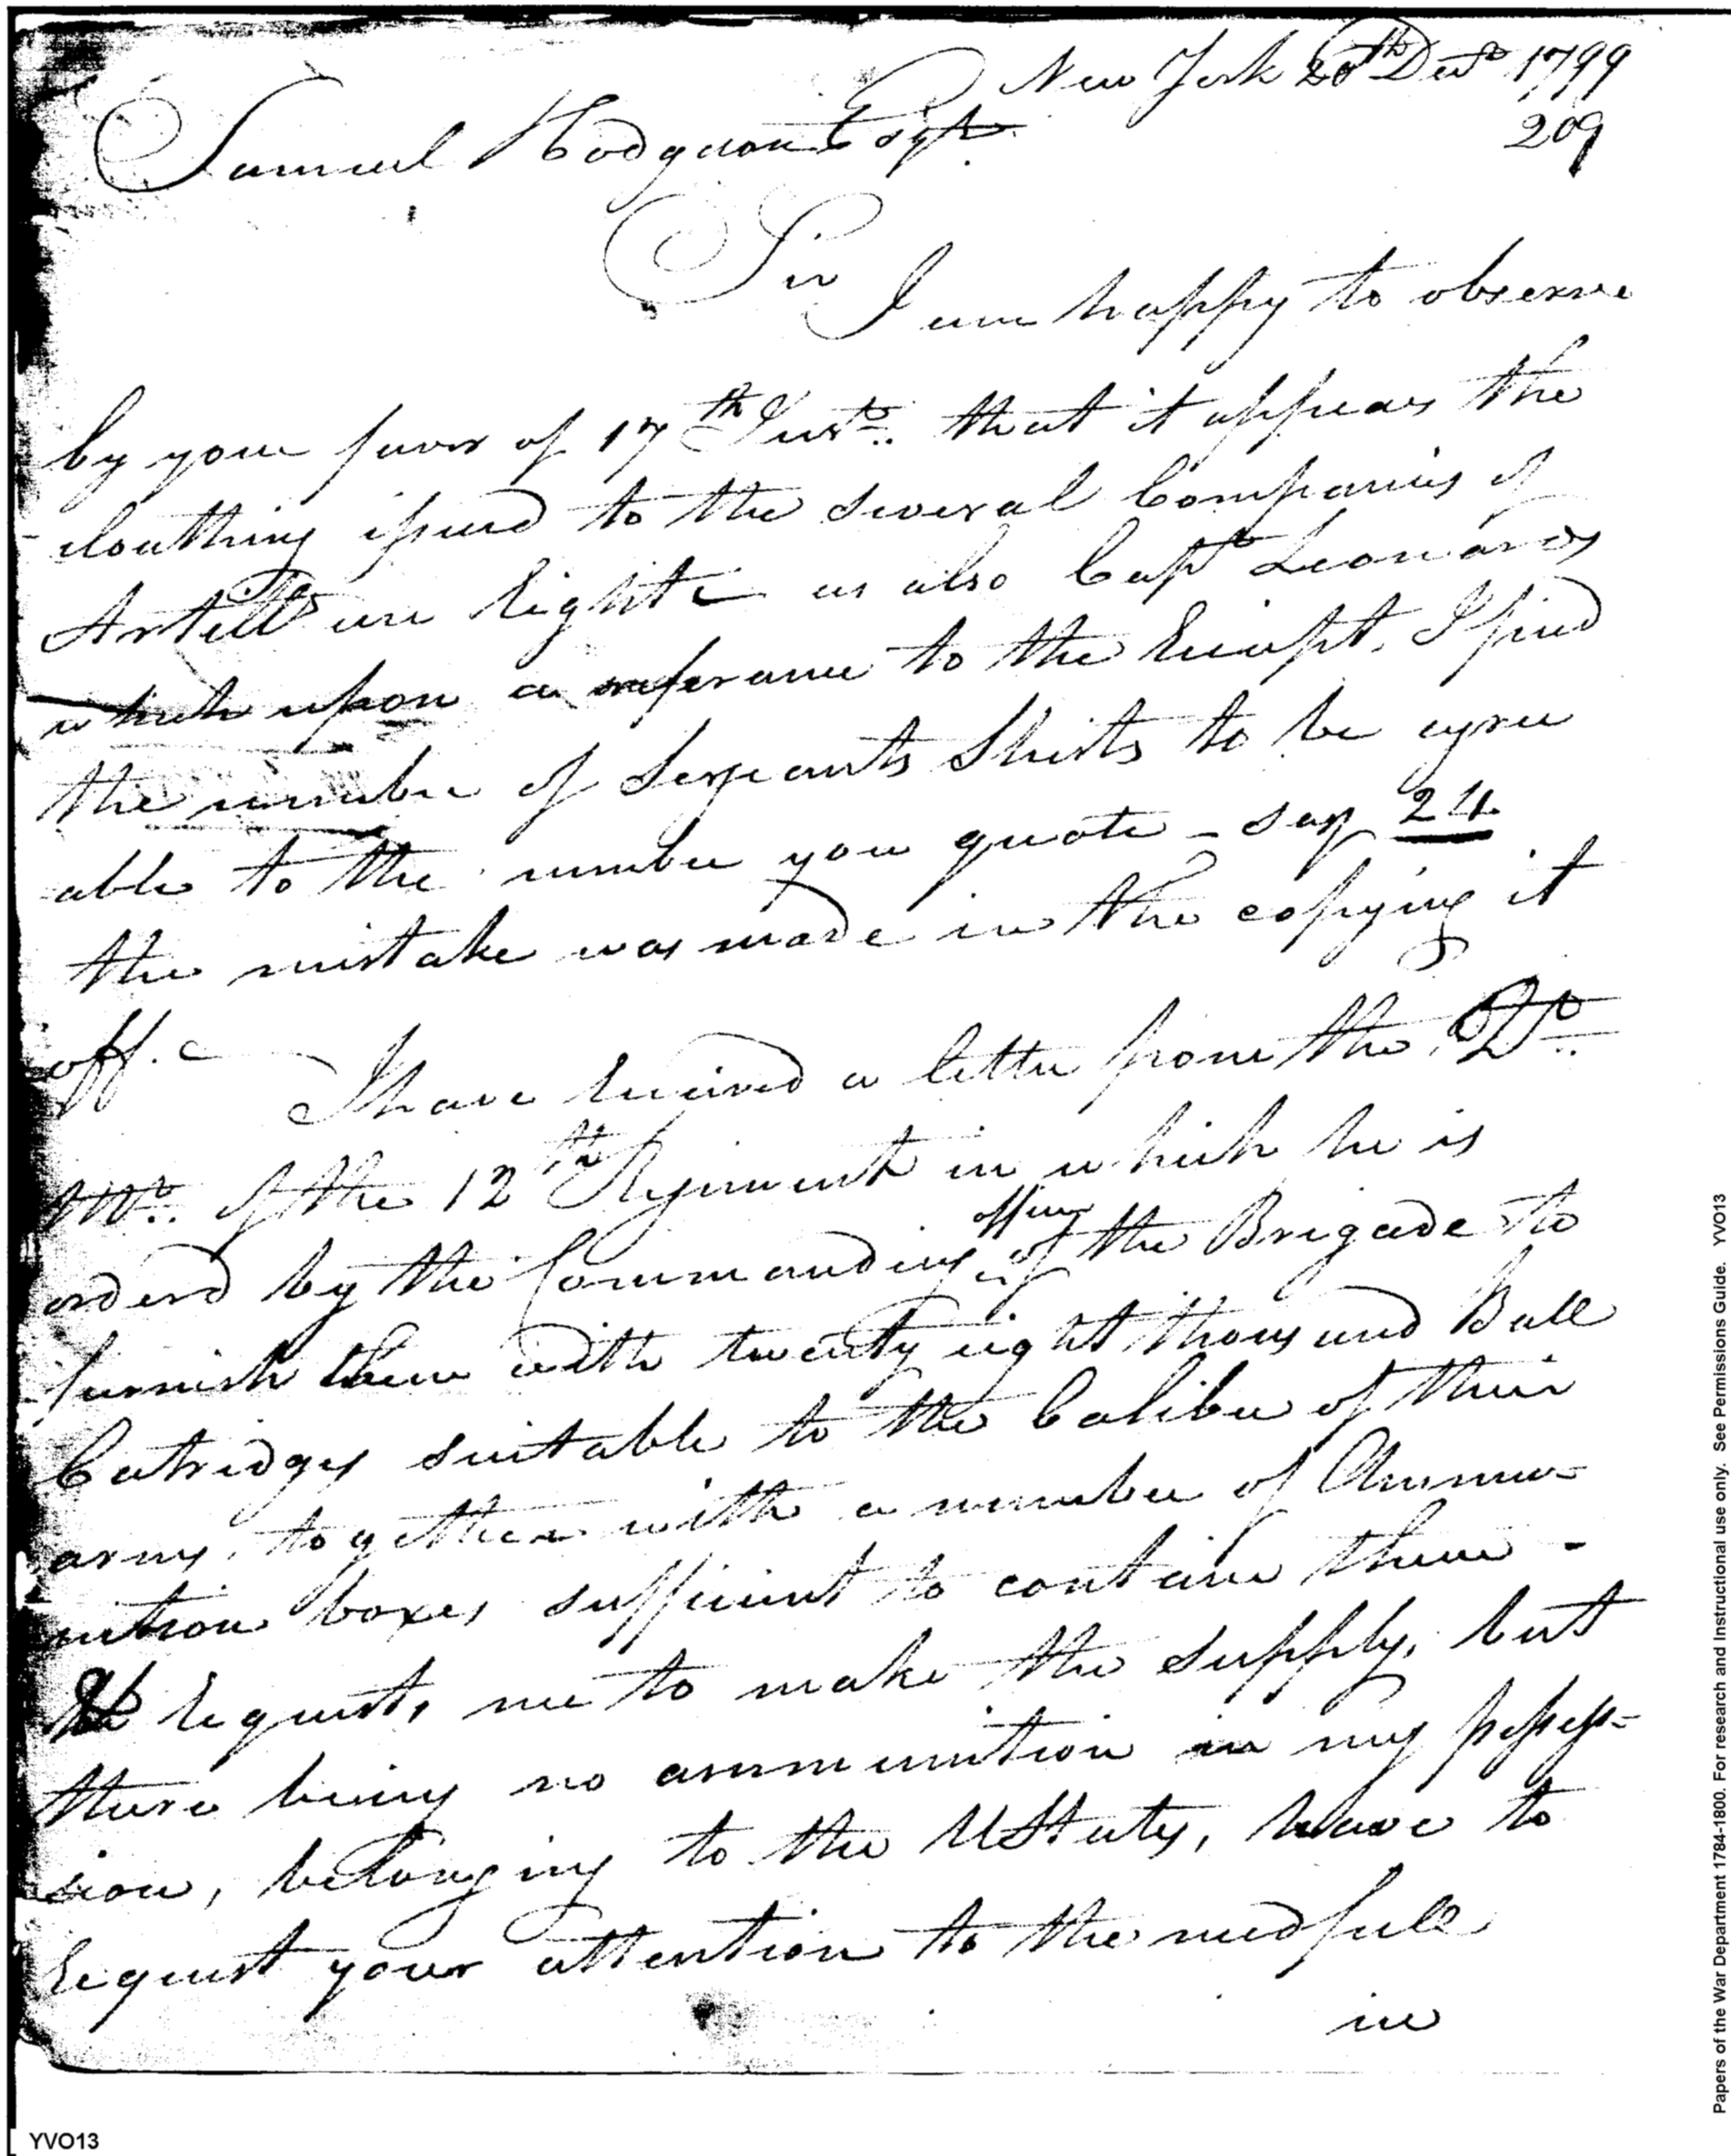 New York 20th Decr 1799
209
Samuel Hodgdon Esqr.
Sir
I am happy to observe
by your favor of 17th Inst. that it appears the
cloathing issued to the several Companies of
Artillr are right as also Capt Leonards
which upon a referance to the Receipt, I find
the number of Serjeants Shirts to be agree
able to the number you quote - say 24
the mistake was made in the copying it
off.
I have received a letter from the Qr.
Mr. of the 12th Regiment in which he is
orderd by the Commanding officer of the Brigade to
furnish them with twenty eight thousand Ball
Catridges suitable to the Caliber of their
arms, together with a number of Ammu-
nition boxes sufficient to contain them -
He requests me to make the supply, but
there being no ammunition in my posses=
sion, belonging to the UStates, have to
request your attention to the needfull
in
YVO13
Papers of the War Department 1784-1800. For research and instructional use only. See Permissions Guide. YVO13